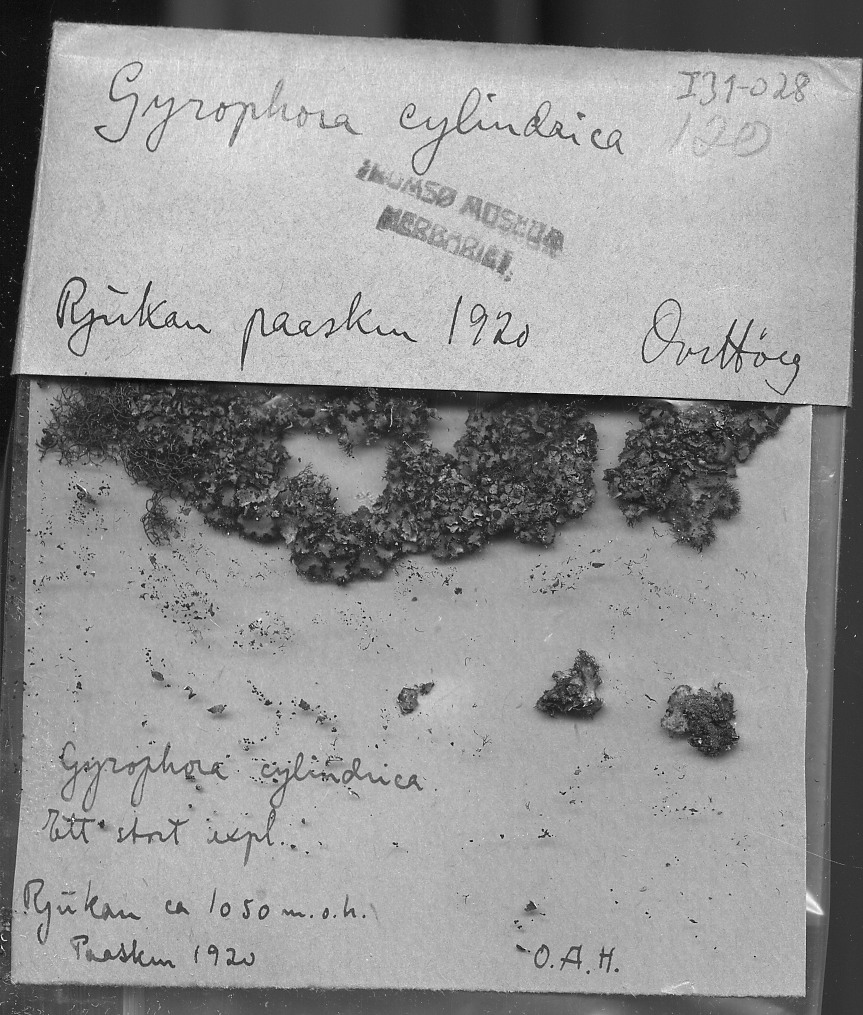 I31-028
Gyrophora cylindrica 120
TROMSØ MUSEUM
HERBARIET.
Rjükan paasken 1920
Gyrophora cylindrica
Ett stort expl.
Rjükan ca 1050 m.o.h.
Paasken 1920 O.A.H.